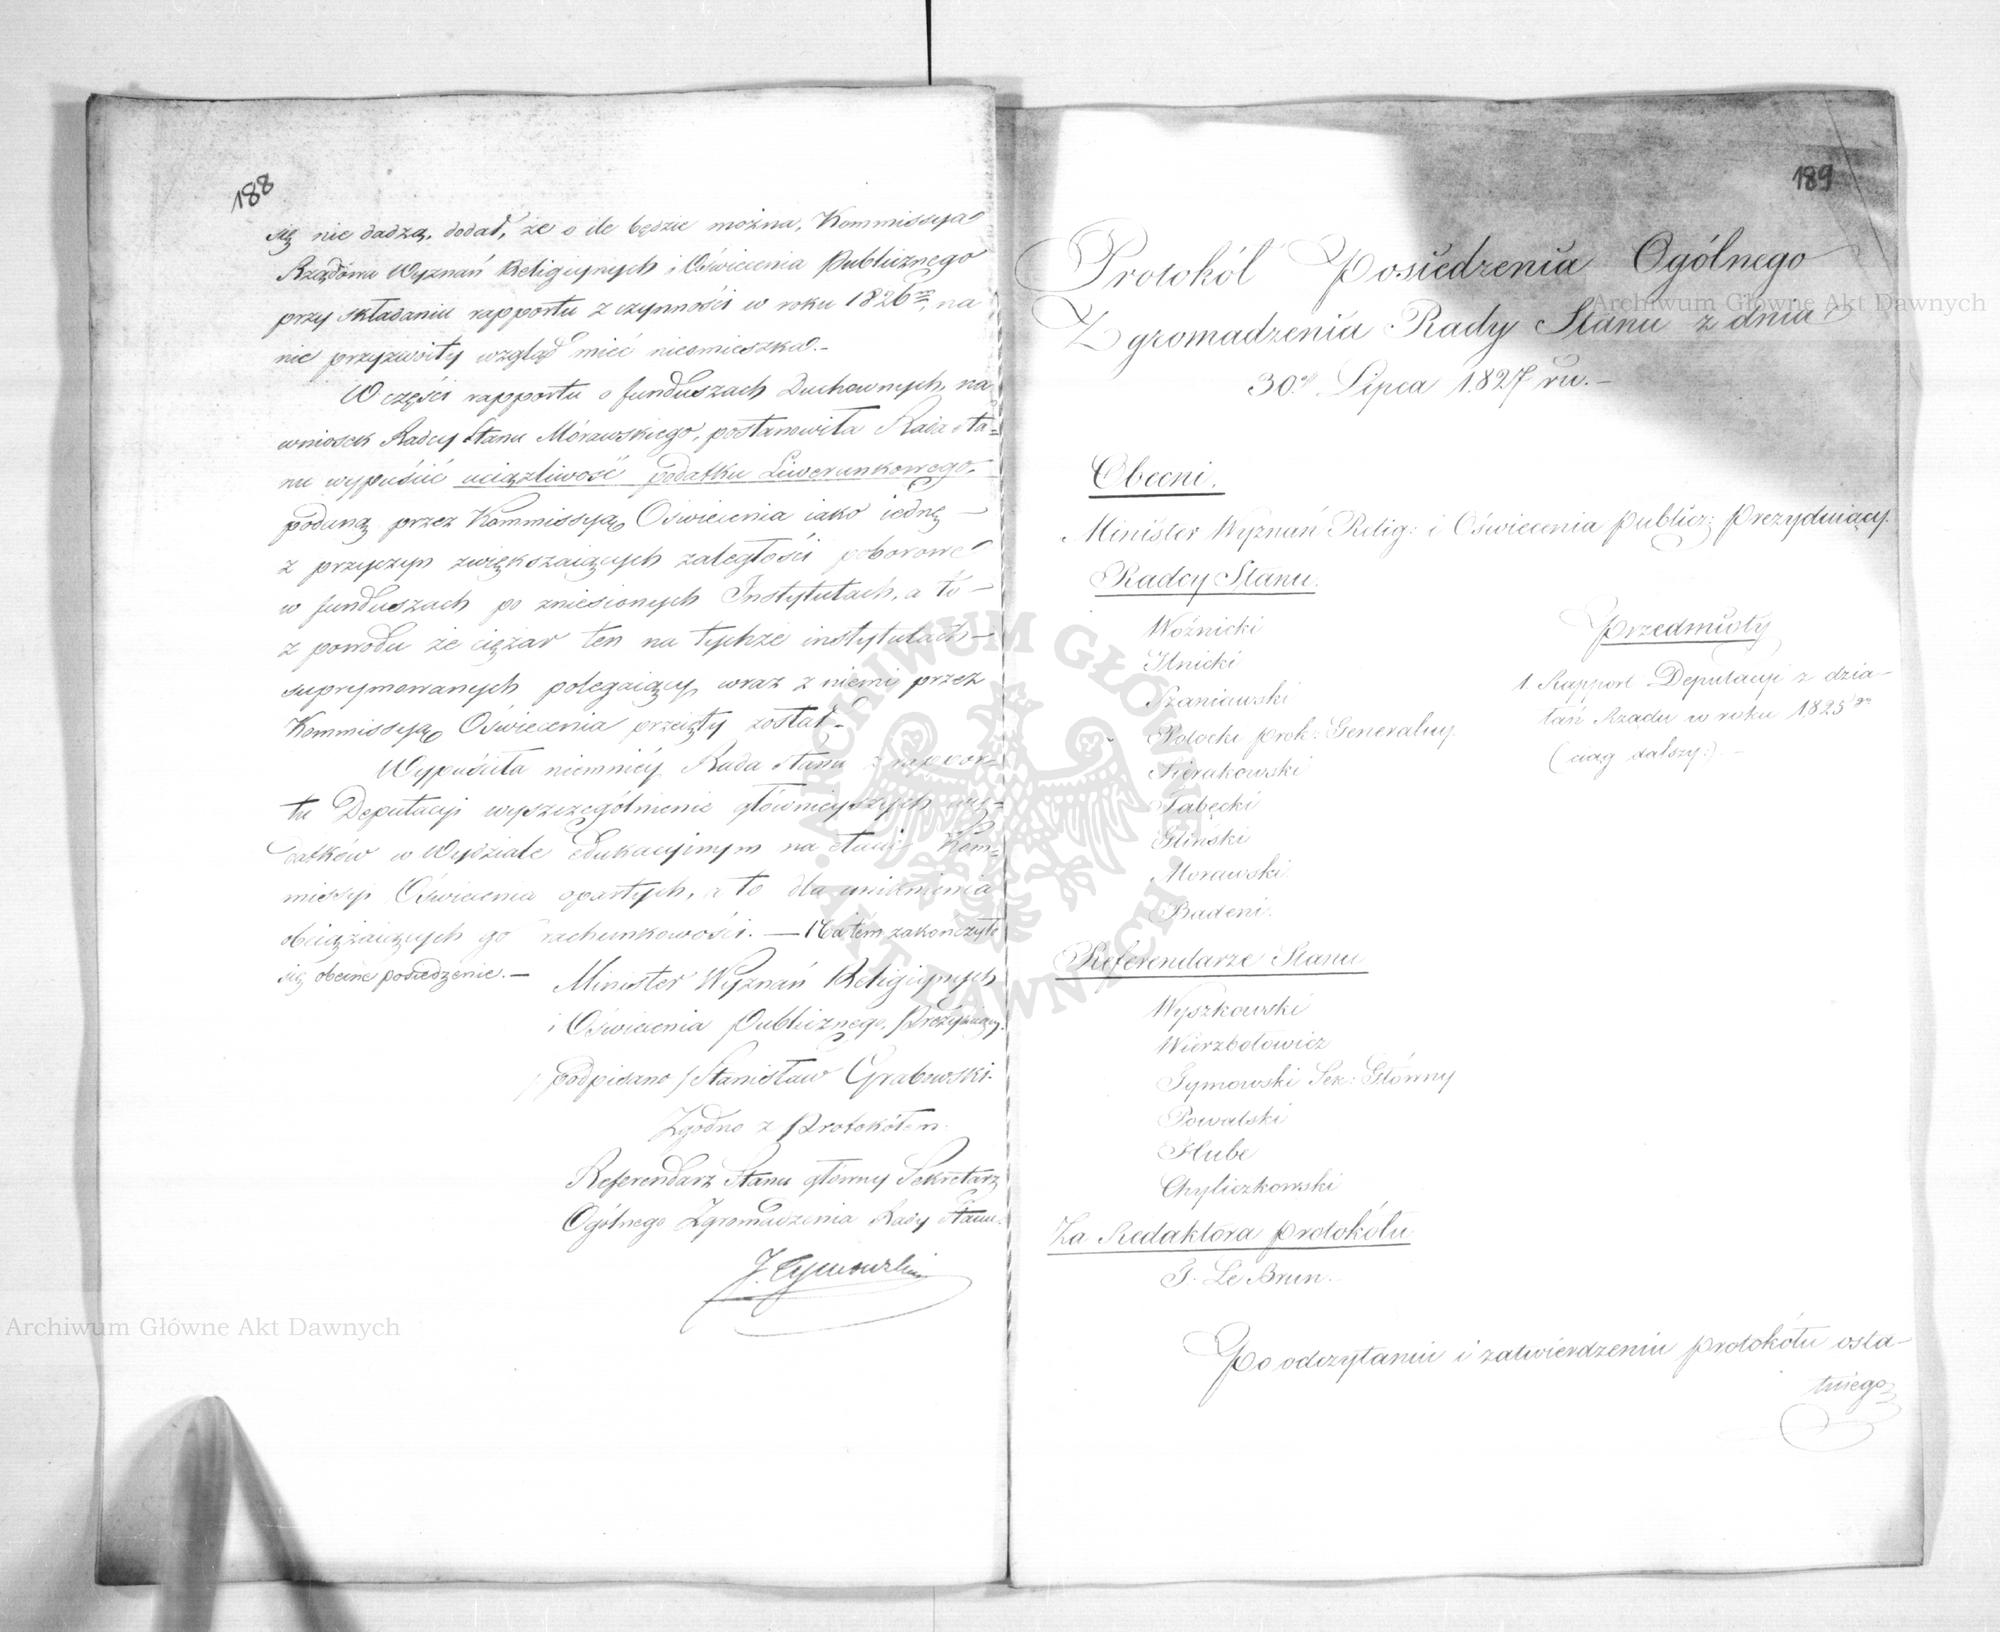 188
się nie dadzą, dodał, że o ile będzie można, Kommissya
Rządowa Wyznań Religijnych i Oświecenia Publicznego
przy składaniu rapportu z czynności w roku 1826m, na
nie przyzwoity wzgląd mieć nieomieszka.-
W części rapportu o funduszach Duchownych, na
wniosek Radcy Stanu Morawskiego, postanowiła Rada Sta=
nu wypuścić uciążliwość podatku Liwerunkowego,
podaną przez Kommissyą Oświecenia iako iedną
z przyczyn zwiększaiących zaległości poborowe
w funduszach po zniesionych Instytutach, a to
z powodu że ciężar ten na tychże instytutach
supprymowanych polegaiący, wraz z niemi przez
Kommissyą Oświecenia przeięty został.-
Wypuściła niemniéj Rada Stanu z rappor=
tu Deputacyi wyszczególnienie główniejszych wy=
datków w Wydziale Edukacyinym na Kom=
missyi Oświecenia opartych, a to dla uniknienia
obciążaiących go rachunkowości. — Na tém zakończyło
się obecne posiedzenie.—
Minister Wyznań Religijnych
i Oświecenia Publicznego, Prezyduiący.
/podpisano/ Stanisław Grabowski.
Zgodno z Protokółem.
Referendarz Stanu główny Sekretarz
Ogólnego Zgromadzenia Rady Stanu.
J. Tymowski
189
Protokół Posiedzenia Ogólnego
Zgromadzenia Rady Stanu z dnia
30go Lipca 1827 ru.-
Obecni.
Minister Wyznań Relig: i Oświecenia Publicz: Prezyduiący.
Radcy Stanu.
Woźnicki
Ilnicki
Szaniawski
Potocki Prok: Generalny
Sierakowski
Tabęcki
Gliński
Morawski
Badeni.
Przedmioty
1. Rapport Deputacyi z dzia-
łań Rządu w roku 1825ym
(ciąg dalszy:).-
Referendarze Stanu
Wyszkowski
Wierzbołowicz
Tymowski Sek: Główny
Powalski
Hube
Chyliczkowski
Za Redaktora Protokółu
J. Le Brun.
Po odczytaniu i zatwierdzeniu protokółu osta-
tniego
Archiwum Główne Akt Dawnych
Archiwum Główne Akt Dawnych
ARCHIWUM GŁÓWNE AKT DAWNYCH